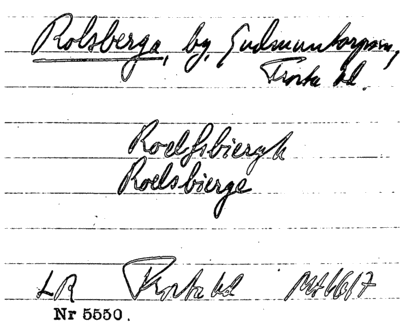 Rolsberga, by, Gudmuntorps sn,
Frosta hd.
Roelfsbiergh
Roelsbierge
LR Frosta hd 1667
Nr 5550.